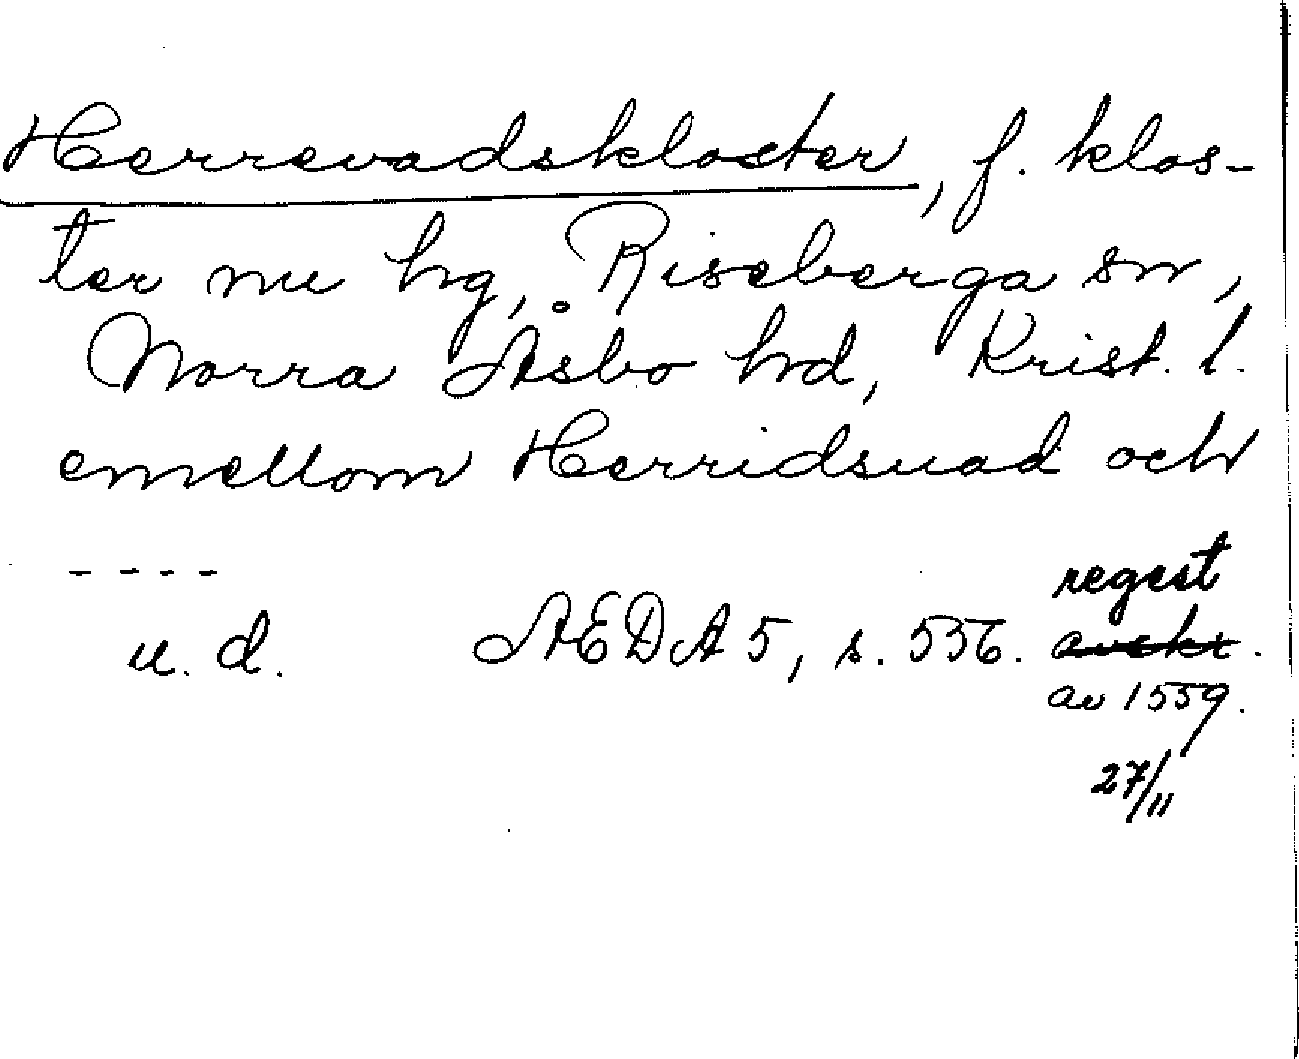 Herrevadskloster, f. klos-
ter nu hg, Riseberga sn,
Norra Åsbo hd, Krist. l.
emellom Herridsuad och
----
regest
u. d. AEDA 5, s. 536. avskr.
av 1559.
27/11